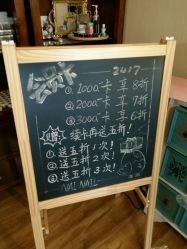 会员卡
2017
①、1000 卡 享 8折
②、2000 卡 享 7折
③、3000 卡 享 6折
赠 续卡再送五折!
①送五折1次!
②送五折2次!
③送五折3次!
NAIL NAIL